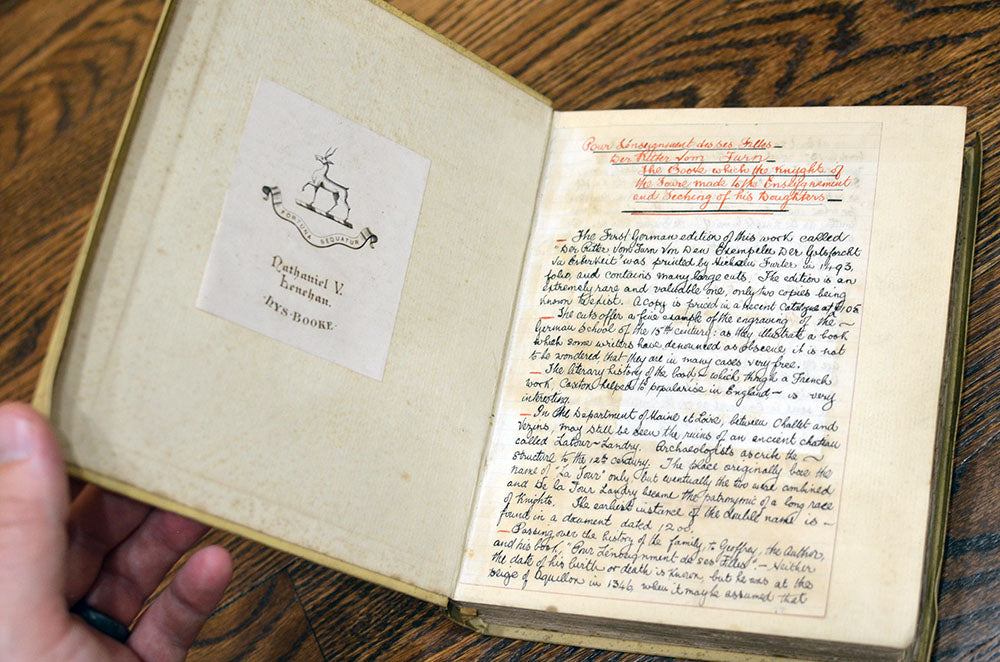 FORTUNA SEQUATUR
Nathaniel V.
Lenehan.
HYS·BOOKE·
Pour Lenseignment des ses Filles
Der Ritter Vom Turn
The Booke which the Knyght of
the Toure made to the Enseygnement
and Teching of his Doughters
The First German edition of this work called
"Der Ritter Vom Turn Von Den Exempeln Der Gotsforcht
Vn Erberkeit" was printed by Michalen Furter in 1493,
folio, and contains many large cuts. The edition is an
extremely rare and valuable one, only two copies being
known to exist. A copy is priced in a recent Catalogue at £105
The cuts offer a fine example of the engraving of the ~
German School of the 15th century: as they illustrate a book
which some writers have denounced as obscene it is not
to be wondered that they are in many cases very free.
The literary history of the book – which though a French
work, Caxton helped to popularise in England – is very
interesting.
In the Department of Maine et Loire, between Chollet and
Vezins, may still be seen the ruins of an ancient chateau
called Latour-Landry. Archaeologists ascribe the ~
structure to the 12th century. The place originally bore the
name of "La Tour" only, but eventually the two were combined
and De la Tour Landry became the patronymic of a long race
of Knights. The earliest instance of the double name is –
found in a document dated 1200.
Passing over the history of the family, to Geoffrey, the Author,
and his book; "Pour Lenseignment de ses Filles". – Neither
the date of his birth or death is known, but he was at the
seige of Aguillon in 1346, when it maybe assumed that